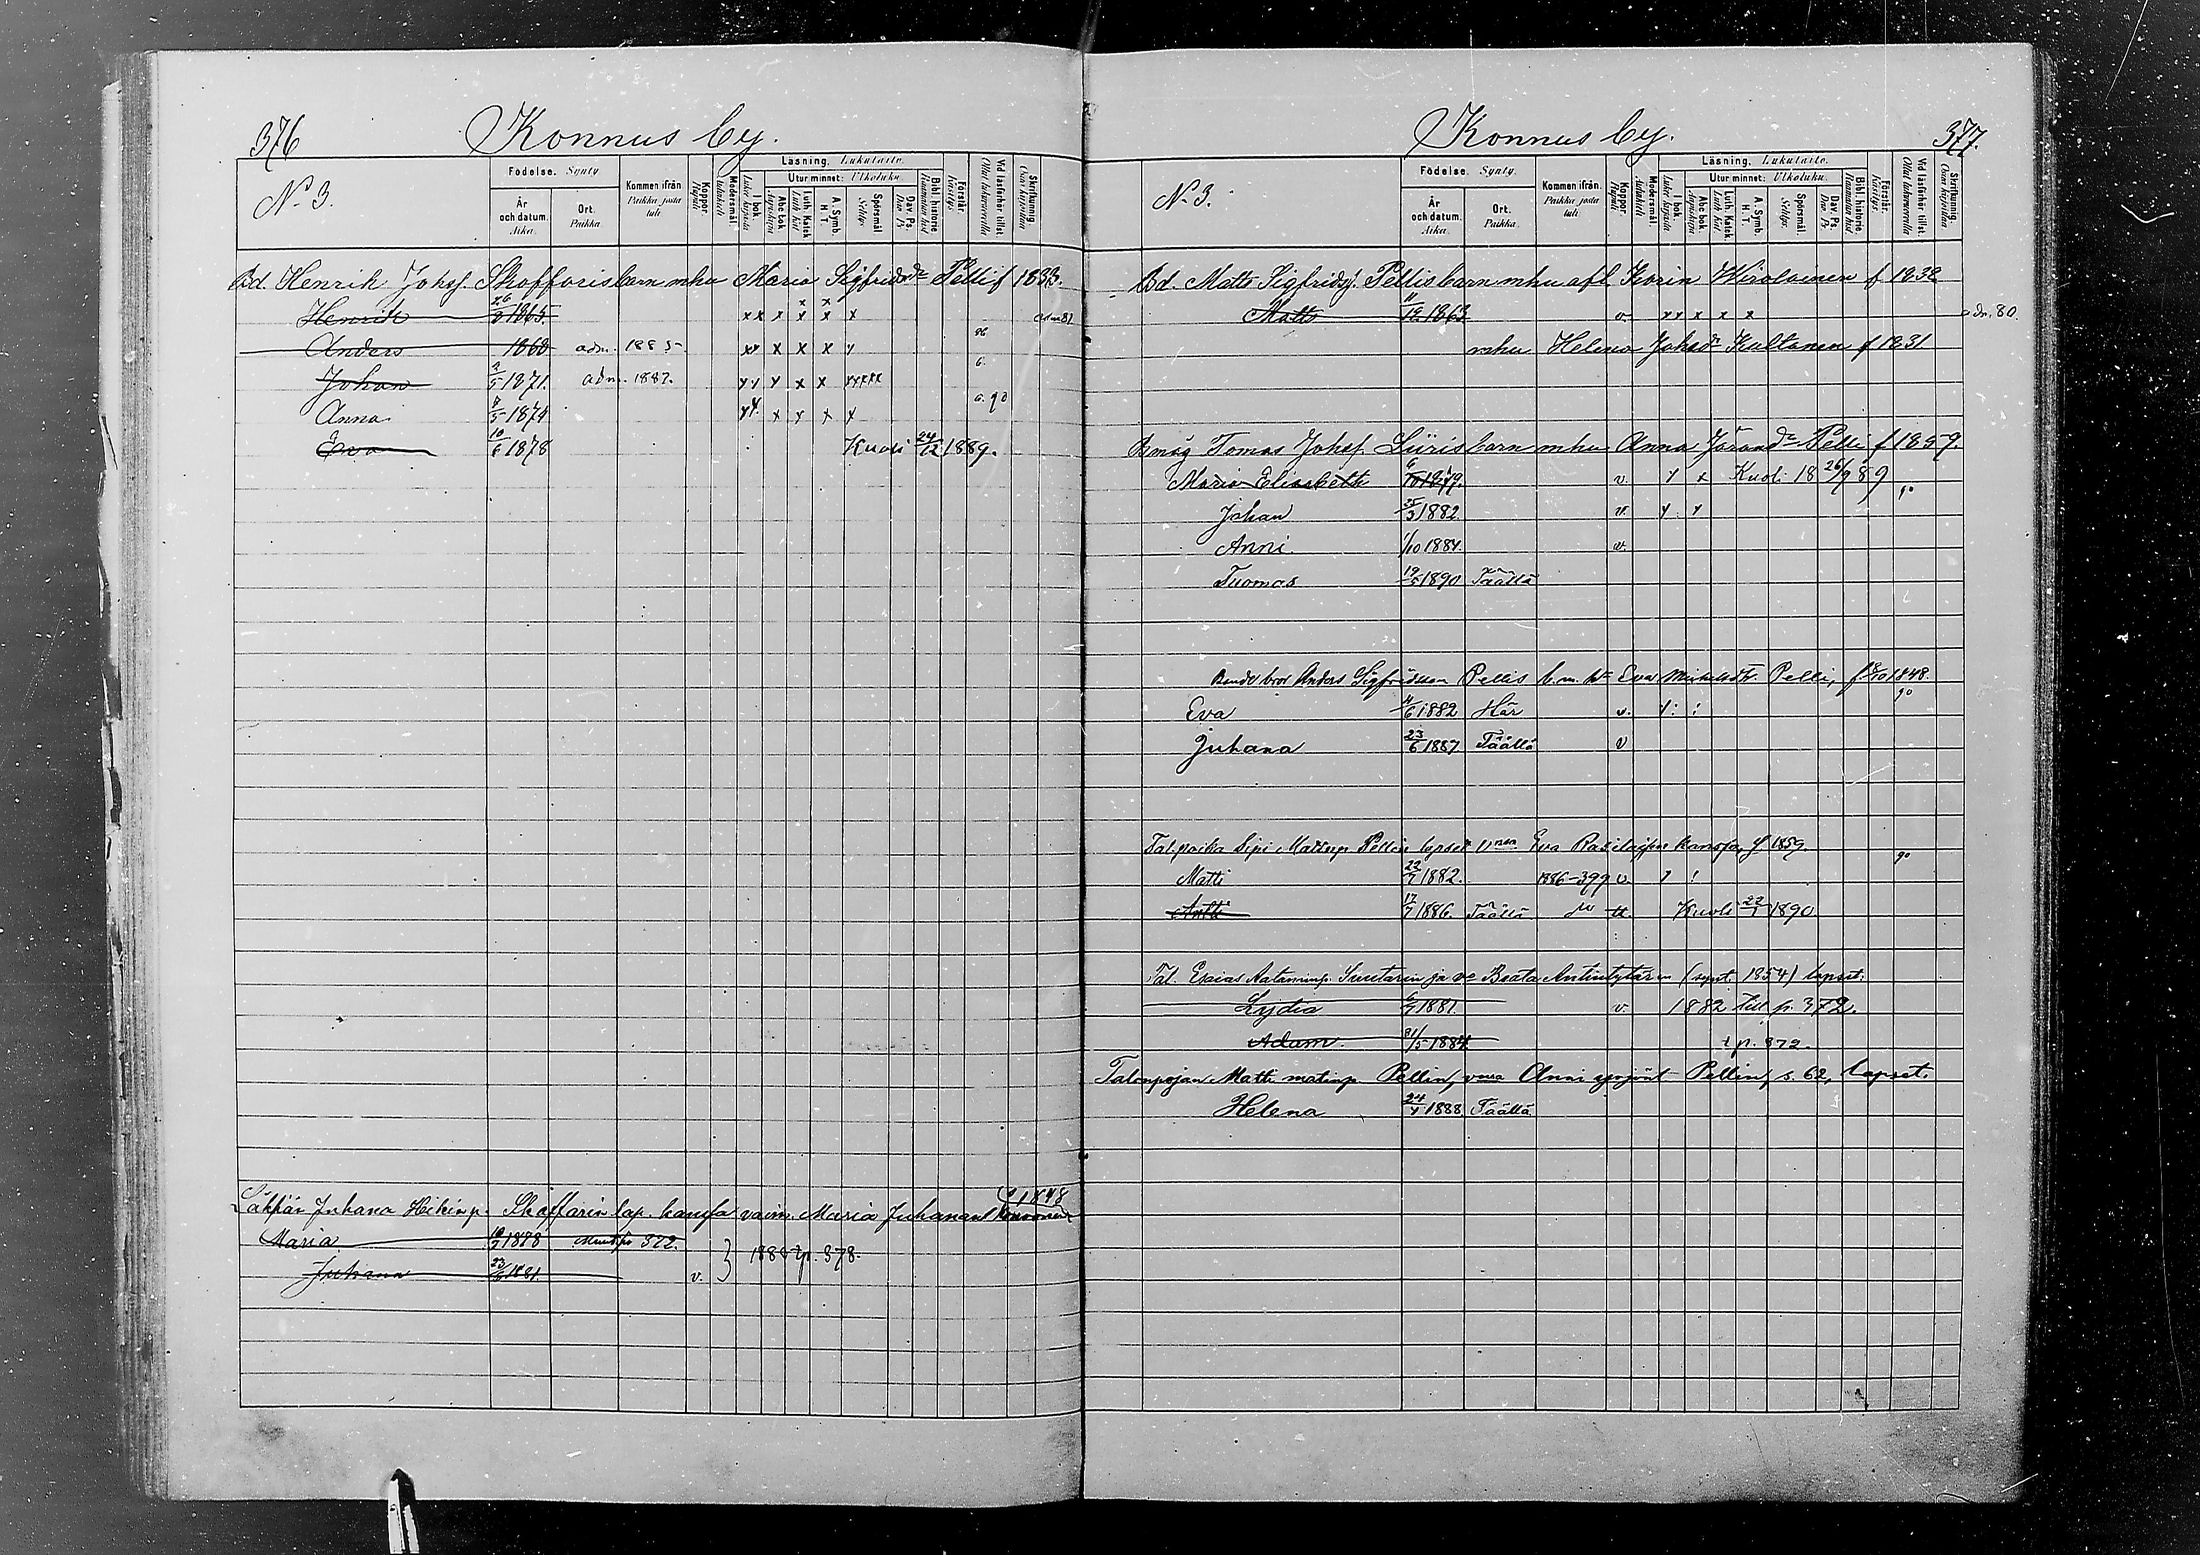 376
Konnus by.
N:o 3.
Födelse. Synty
År och datum. Aika.
Ort. Paikka.
Kommen ifrån. Paikka josta tuli
Koppor. Rupuli
Modersmål.
Läsning. Lukutaito.
I bok.
Utur minnet: Ulkoluku.
Abc bok
Luth. Katek.
A. Symb. H. T.
Spörsmål
Dav. Ps.
Bibl. historie
Förstår. Käsitys
Vid läsförhör tillst.
Skrifkunnig.
Bd. Henrik Johsf. Skaffaris barn m hu Maria Sigfridsdr Pelli f 1833.
Henrik 26/3 1865. x x x x x x adm 81
Anders 1868 adm. 1885 xx x x x y
Johan 2/5 1871. adm. 1887. x x x x x xxxx
Anna 8/3 1874 x x x x x x a. 90
Eva 10/6 1878 Kuoli 24/12 1889.
Juhana Heikinp. Skaffarin lap. kanssa vaim. Maria Juhanant f 1848
Maria 1878 372.
Juhana 23/6 1881. v. } p. 378.
377.
Konnus by.
N:o 3.
Födelse. Synty.
År och datum. Aika.
Ort. Paikka.
Kommen ifrån. Paikka josta tuli
Koppor. Rupuli
Modersmål.
Läsning. Lukutaito.
I bok.
Utur minnet: Ulkoluku.
Abc bok.
Luth. Katek.
A. Symb. H. T.
Spörsmål.
Dav. Ps.
Bibl. historie
Förstår. Käsitys
Vid läsförhör tillst.
Skrifkunnig.
Bd. Matts Sigfridsf. Pellis barn m hu afl. Karin Wirolainen f 1832.
Matts 11/12 1863 v. x x x x x adm. 80.
m hu Helena Johsdr Kultanen f 1831.
Bmåg Tomas Johsf. Siiris barn m hu Anna Göransdr Pelli f 1859.
Maria Elisabeth 6/10 1879. v. y x Kuoli 18 26/9 89
Johan 25/3 1882. v. y y
Anni 1/10 1884. v.
Tuomas 19/5 1890 Täällä
Bonde bror Anders Sigfridsson Pellis b. m. h. Eva Michelsdtr. Pelli, f 8/10 1848.
Eva 11/6 1882 Här v. 90
Juhana 23/6 1887 Täällä v
Tal.poika Sipi Matinp. Pellin lapset Eva Rasilaisen kanssa, f 1859.
Matti 22/7 1882. 1886-399 v. 90
Antti 17/7 1886. Täällä Kuoli 22/1 1890
Tal. Esaias Aataminp. Suutarin ja v:o Beata Antintytären (synt. 1854) lapset.
Lydia 1881. v. 1882 till p. 372.
Adam. 31/5 1884 t p. 372.
Talonpojan Matti matinp. Pellin, v:nsa Anni yrjönt Pellin, s. 62, lapset.
Helena 24/4 1888 Täällä